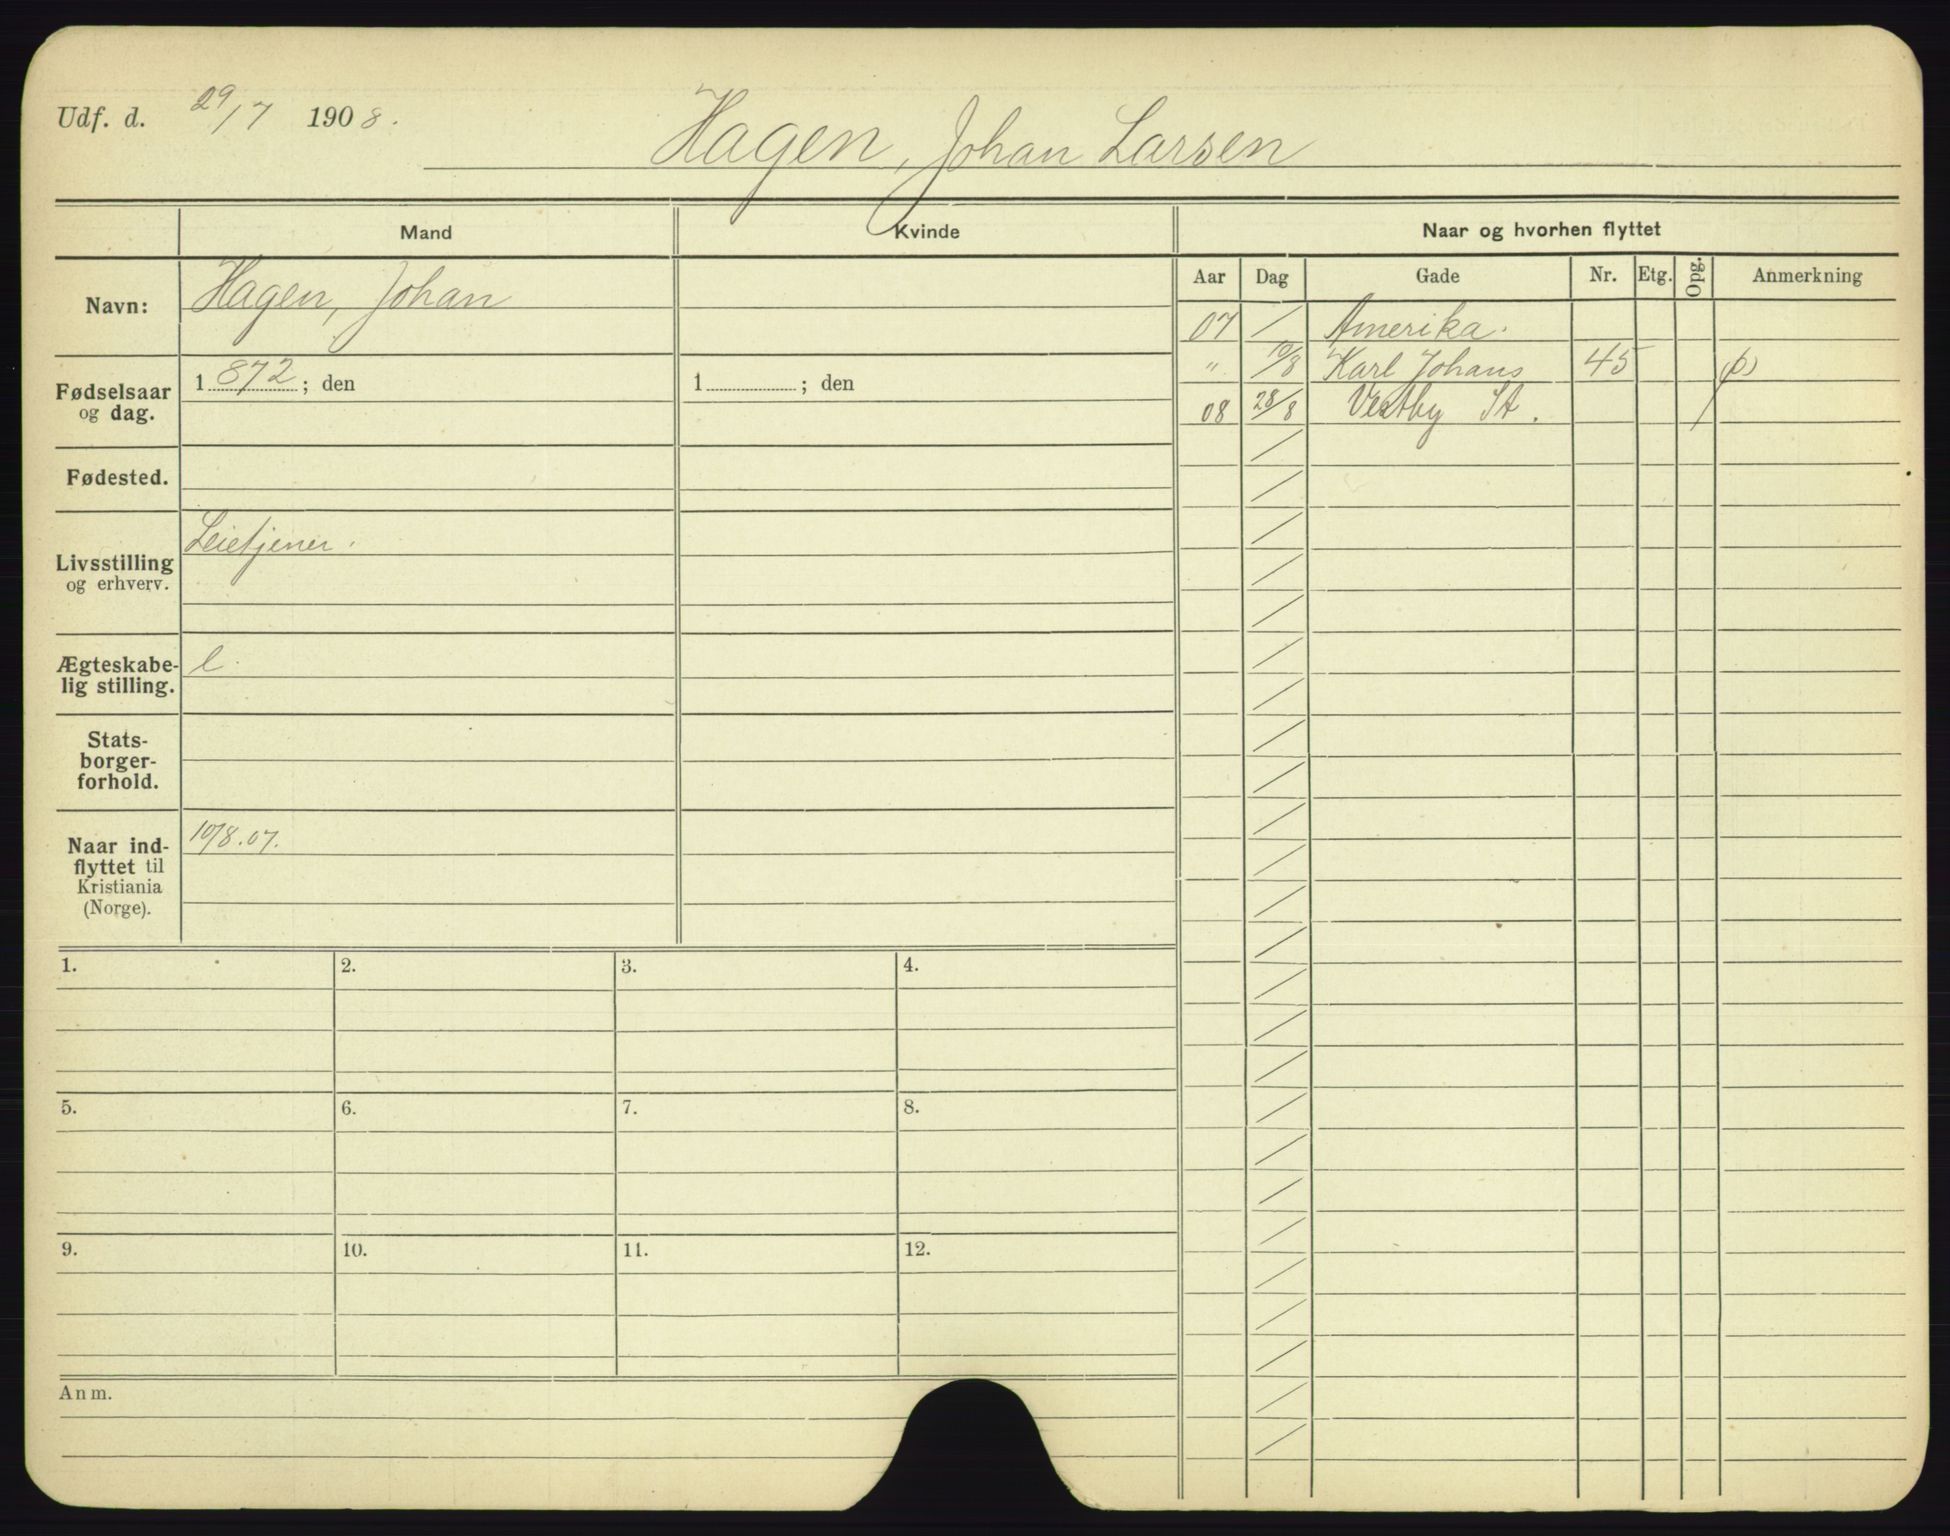 Udf. d. 29/7 1908.
Hagen, Johan Larsen
Mand
Kvinde
Naar og hvorhen flyttet
Aar Dag Gade Nr. Etg. Opg. Anmerkning
Navn: Hagen, Johan
07 / Amerika.
" 10/8 Karl Johans 45 (p)
08 28/8 Vestby St.
Fødselsaar
og dag.
1872; den
1 ; den
Fødested.
Livsstilling
og erhverv.
Leietjener.
Ægteskabe-
lig stilling.
e.
Stats-
borger-
forhold.
Naar ind-
flyttet til
Kristiania
(Norge).
10/8.07.
1. 2. 3. 4.
5. 6. 7. 8.
9. 10. 11. 12.
Anm.